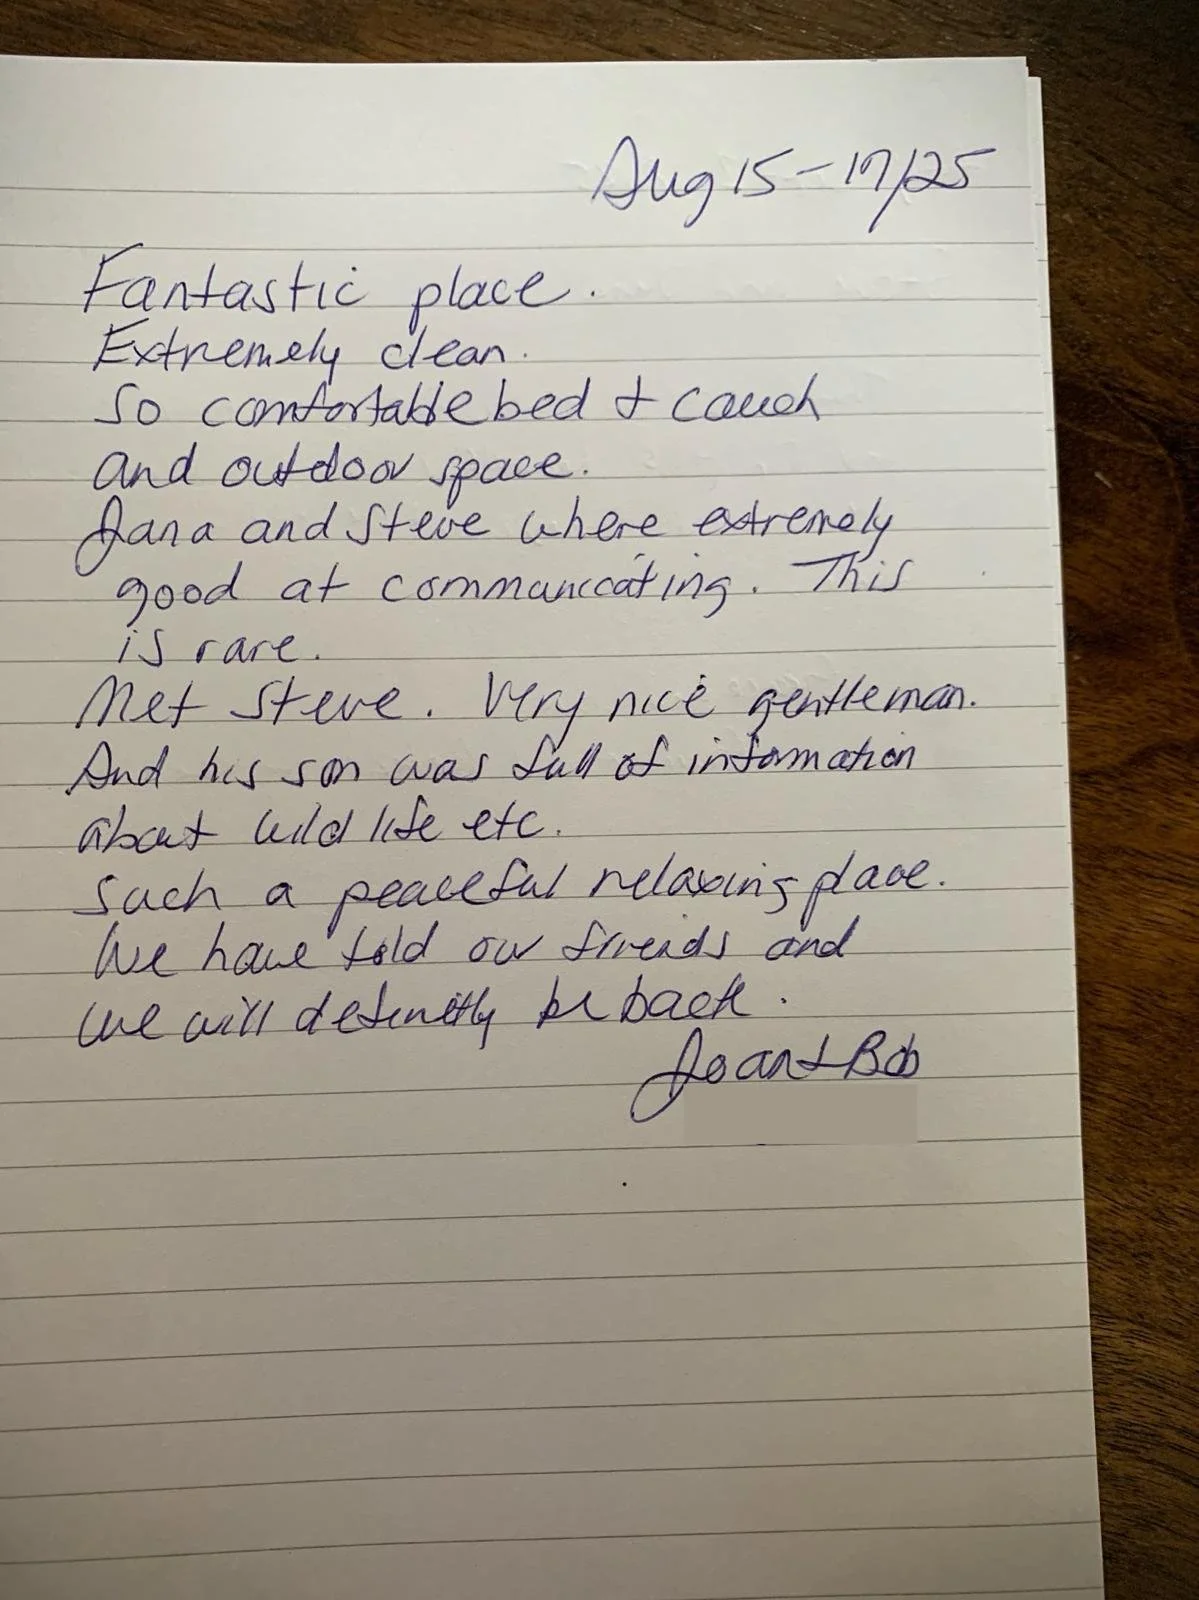 Aug 15-17/25
Fantastic place.
Extremely clean.
So comfortable bed + couch
and outdoor space.
Jana and Steve where extremely
good at communicating. This
is rare.
Met Steve. Very nice gentleman.
And his son was full of information
about wild life etc.
Such a peaceful relaxing place.
We have told our friends and
we will definitly be back.
Jo and Bob